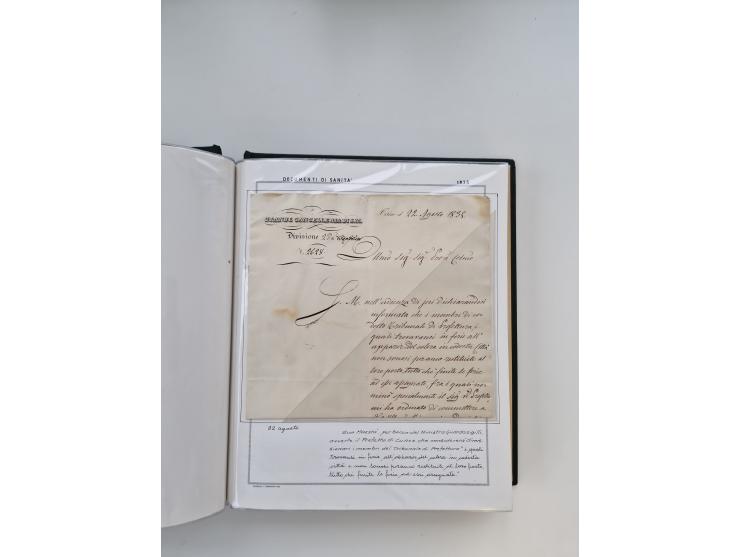 DOCUMENTI DI SANITA' 1835
GRANDE CANCELLERIA DI S.M.
Divisione 2.da
N. 2628
22 Agosto 1835
S. M. nell'udienza di jeri dichiarandosi
informata che i membri di co-
desto Tribunale di Prefettura, i
quali trovaransi in ferie all'
apparir del colera in codesta città
non sonosi peranco restituiti al
loro posto, tutto che finite le ferie
ad essi assegnate, fra i quali no-
minò specialmente il Sig.
mi ha ordinato di commettere a
22 agosto
Sua Maestà, per bocca del Ministro Guardasigilli,
avverte il Prefetto di Cuneo che
i membri del Tribunale di Prefettura "i quali
trovansi in ferie all'apparir del colera in codesta
città e non sonosi peranco restituiti al loro posto
tutto che finite le ferie ad essi assegnate".